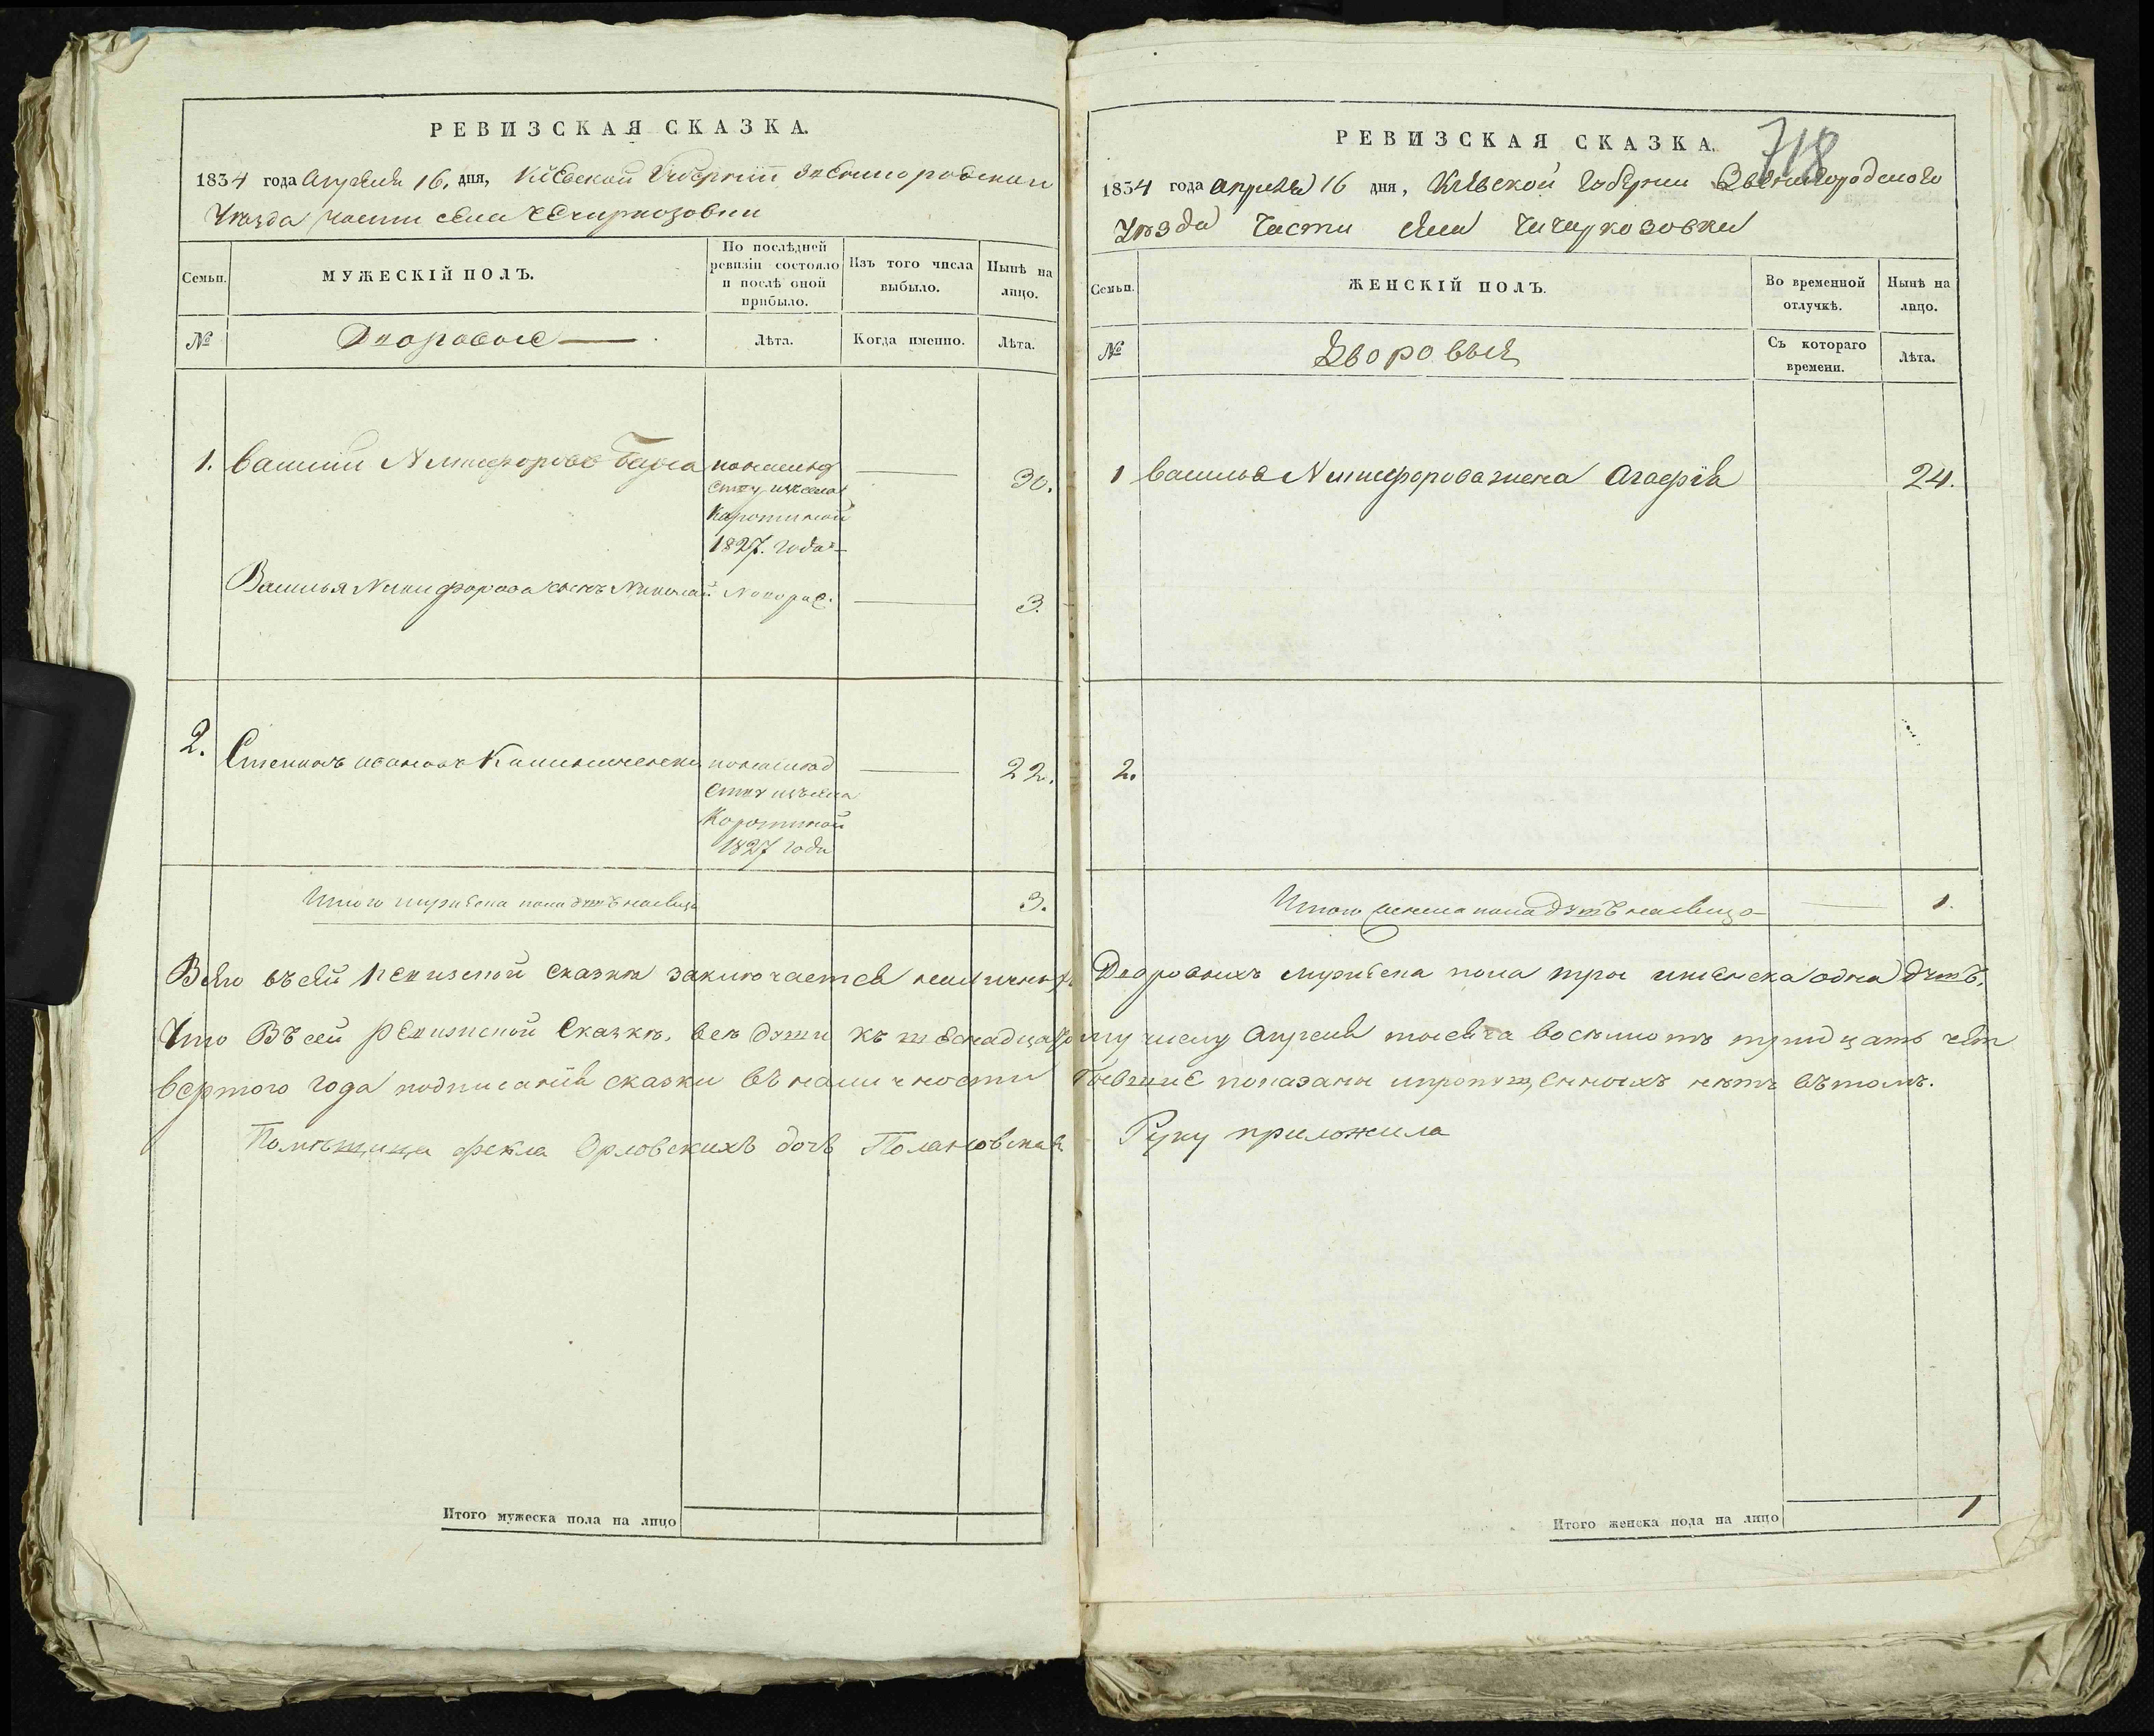 РЕВИЗСКАЯ СКАЗКА.
1834 года Апреля 16. дня, Кіевской Губерніи Звенигородскаго
Уѣзда части села Чечиркозовки
Семьи.
МУЖЕСКІЙ ПОЛЪ.
По послѣдней ревизіи состояло и послѣ оной прибыло.
Изъ того числа выбыло.
Нынѣ на лицо.
№
Дворовые
Лѣта.
Когда именно.
Лѣта.
1. Василій Никифоровъ
по наслѣд
ству изъ села
1827. года
30.
Василья Никифорова сынъ Николай
новорож.
3.
2. Степанъ Ивановъ
по наслѣд
ству изъ села
1827 года
22.
Итого мужеска пола душъ налицо
3.
Всего въ сей ревизской сказкѣ заключается наличныхъ
Что Въ сей ревизской Сказкѣ, всѣ души къ шеснадцато
вертого года подписанія сказки въ наличности
Помѣщица Фекла Орловскихъ дочь
Итого мужеска пола на лицо
РЕВИЗСКАЯ СКАЗКА.
718
1834 года апреля 16 дня, Кіевской Губерни Звенигородского
Уѣзда Части села Чичиркозовки
Семьи.
ЖЕНСКІЙ ПОЛЪ.
Во временной отлучкѣ.
Нынѣ на лицо.
№
Дворовыя
Съ котораго времени.
Лѣта.
1 Василья Никифорова жена Агафія
24.
2.
Итого женска пола душъ налицо
1.
Дворовыхъ мужеска пола три и женска одна душъ.
му числу Апреля тысяча восьмотъ тридцать чет
бывшие показаны и пропущенныхъ нетъ въ томъ.
Руку приложила
Итого женска пола на лицо
1